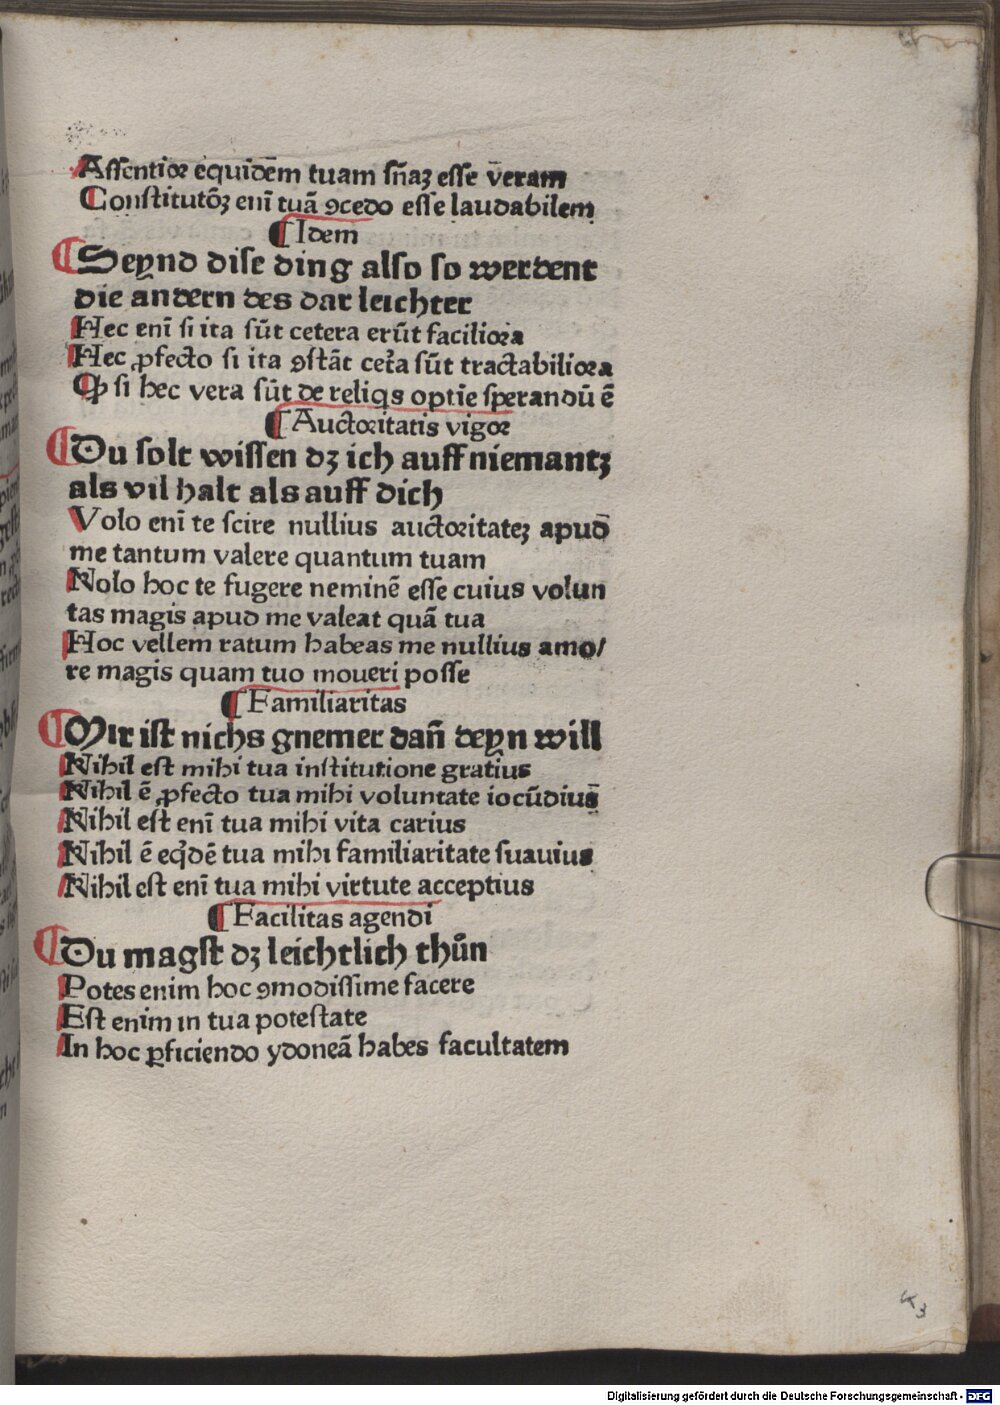 Assentior equidēm tuam sn̄aꝫ esse v̄eram
Constitutōꝫ enī tuā ꝯcedo esse laudabilem
¶ Idem
¶ Seynd dise ding also so werdent
die andern des dar leichter
Hec enī si ita sūt cetera erūt faciliora
Hec ꝓfecto si ita ꝯstāt cet̄a sūt tractabiliora
Ꝙ si hec vera sūt de reliqͥs optīe sperandū ē
¶ Auctoritatis vigor
¶ Du solt wissen dꝫ ich auff niemantꝫ
als vil halt als auff dich
Volo enī te scire nullius auctoritateꝫ apud̄
me tantum valere quantum tuam
Nolo hoc te fugere neminē esse cuius volun
tas magis apud me valeat quā tua
Hoc vellem ratum habeas me nullius amo/
re magis quam tuo moueri posse
¶ Familiaritas
¶ Mir ist nichs gnemer dañ deyn will
Nihil est mihi tua institutione gratius
Nihil ē ꝓfecto tua mihi voluntate iocūdius
Nihil est enī tua mihi vita carius
Nihil ē eqͥdē tua mihi familiaritate suauius
Nihil est enī tua mihi virtute acceptius
¶ Facilitas agendi
¶ Du magst dꝫ leichtlich thůn
Potes enim hoc ꝯmodissime facere
Est enim in tua potestate
In hoc ꝑficiendo ydoneā habes facultatem
Digitalisierung gefördert durch die Deutsche Forschungsgemeinschaft - DFG